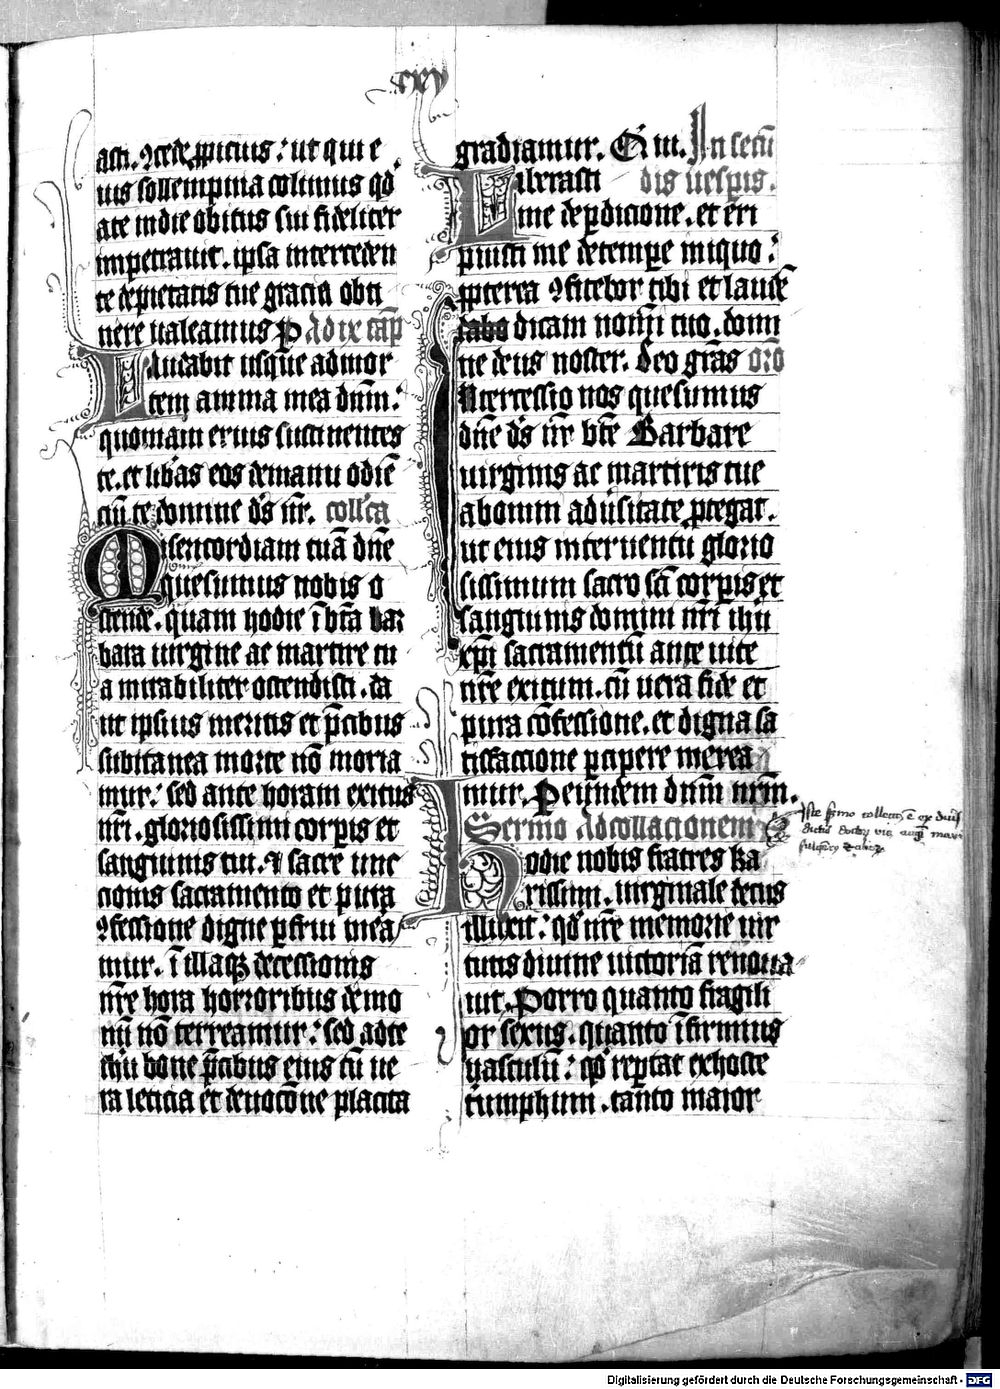 cxv
asti. ꝯcede ꝓpicius: ut qui e
ius sollempnia colimus qd
ate in die obitus sui fideliter
impetrauit. ipsa interceden
te de pietatis tue gracia obti
nere ualeamus P Ad ix cap̄
Audabit usq̄ue ad mor
tem anima mea dn̄m:
quoniam eruis sustinentes
te. et lib̓as eos de manu odiē
ciū te domine ds̄ nr̄. coll̓ca
Misericordiam tuā dn̄e
quesumus nobis o
stende. quam hodie ī bt̄a bar
bara uirgine ac martire tu
a mirabiliter ostendisti. da
ut ipsius meritis et p̄cibus
subitanea morte nō moria
mur: sed ante horam exitus
nr̄i. gloriosissimi corpis et
sanguinis tui. et sacre unc
cionis sacramento et pura
ꝯfessione digne pfrui mea
mur. ī illaqꝫ decessionis
nr̄e hora horroribus demo
nū nō terreamur: sed ad te
ihū bone p̄cibus eius cū ue
ra leticia et deuocōne placita
gradiamur. Qui. In secū
Liberasti dis uesp̄is.
me de pdicione. et eri
puisti me de tempe iniquo:
ꝓpterea ꝯfitebor tibi et laudē
tabo dicam nomī tuo. domi
ne deus noster. Deo grās orō
Intercessio nos quesumus
dn̄e ds̄ nr̄ bt̄e Barbare
uirginis ac martiris tue
ab omni aduersitate ptegat.
ut eius interuentu glorio
sissimum sacro sc̄i corpis et
sanguinis domini nr̄i ihū
xp̄i sacramentū ante uite
nr̄e exitum. cū uera fide et
pura cōfessione. et digna sa
tisfaccione pcipere merea
mur. Per eundem dn̄m nr̄m.
Sermo Ad collacionem
Hodie nobis fratres ka
rissimi. uirginale decus
illuxit: qd̓ nr̄e memorie uir
tutis diuine uictoriā renoua
uit. Porro quanto fragili
or sexus. quanto īfirmius
uasculū: qd̓ reptat ex hoste
triumphum. tanto maior
Iste sermo collectus ē ex diuersis
dictis doctorū
Digitalisierung gefördert durch die Deutsche Forschungsgemeinschaft - DFG